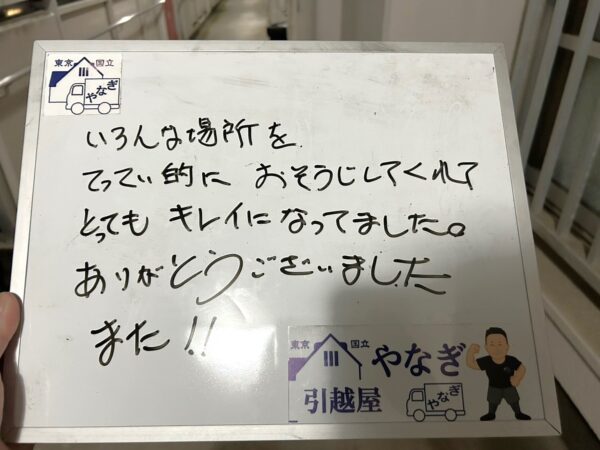 東京 国立
やなぎ
いろんな場所を
てってい的に おそうじしてくれて
とっても キレイになってました。
ありがとうございました
また!!
東京 国立
やなぎ
引越屋
やなぎ